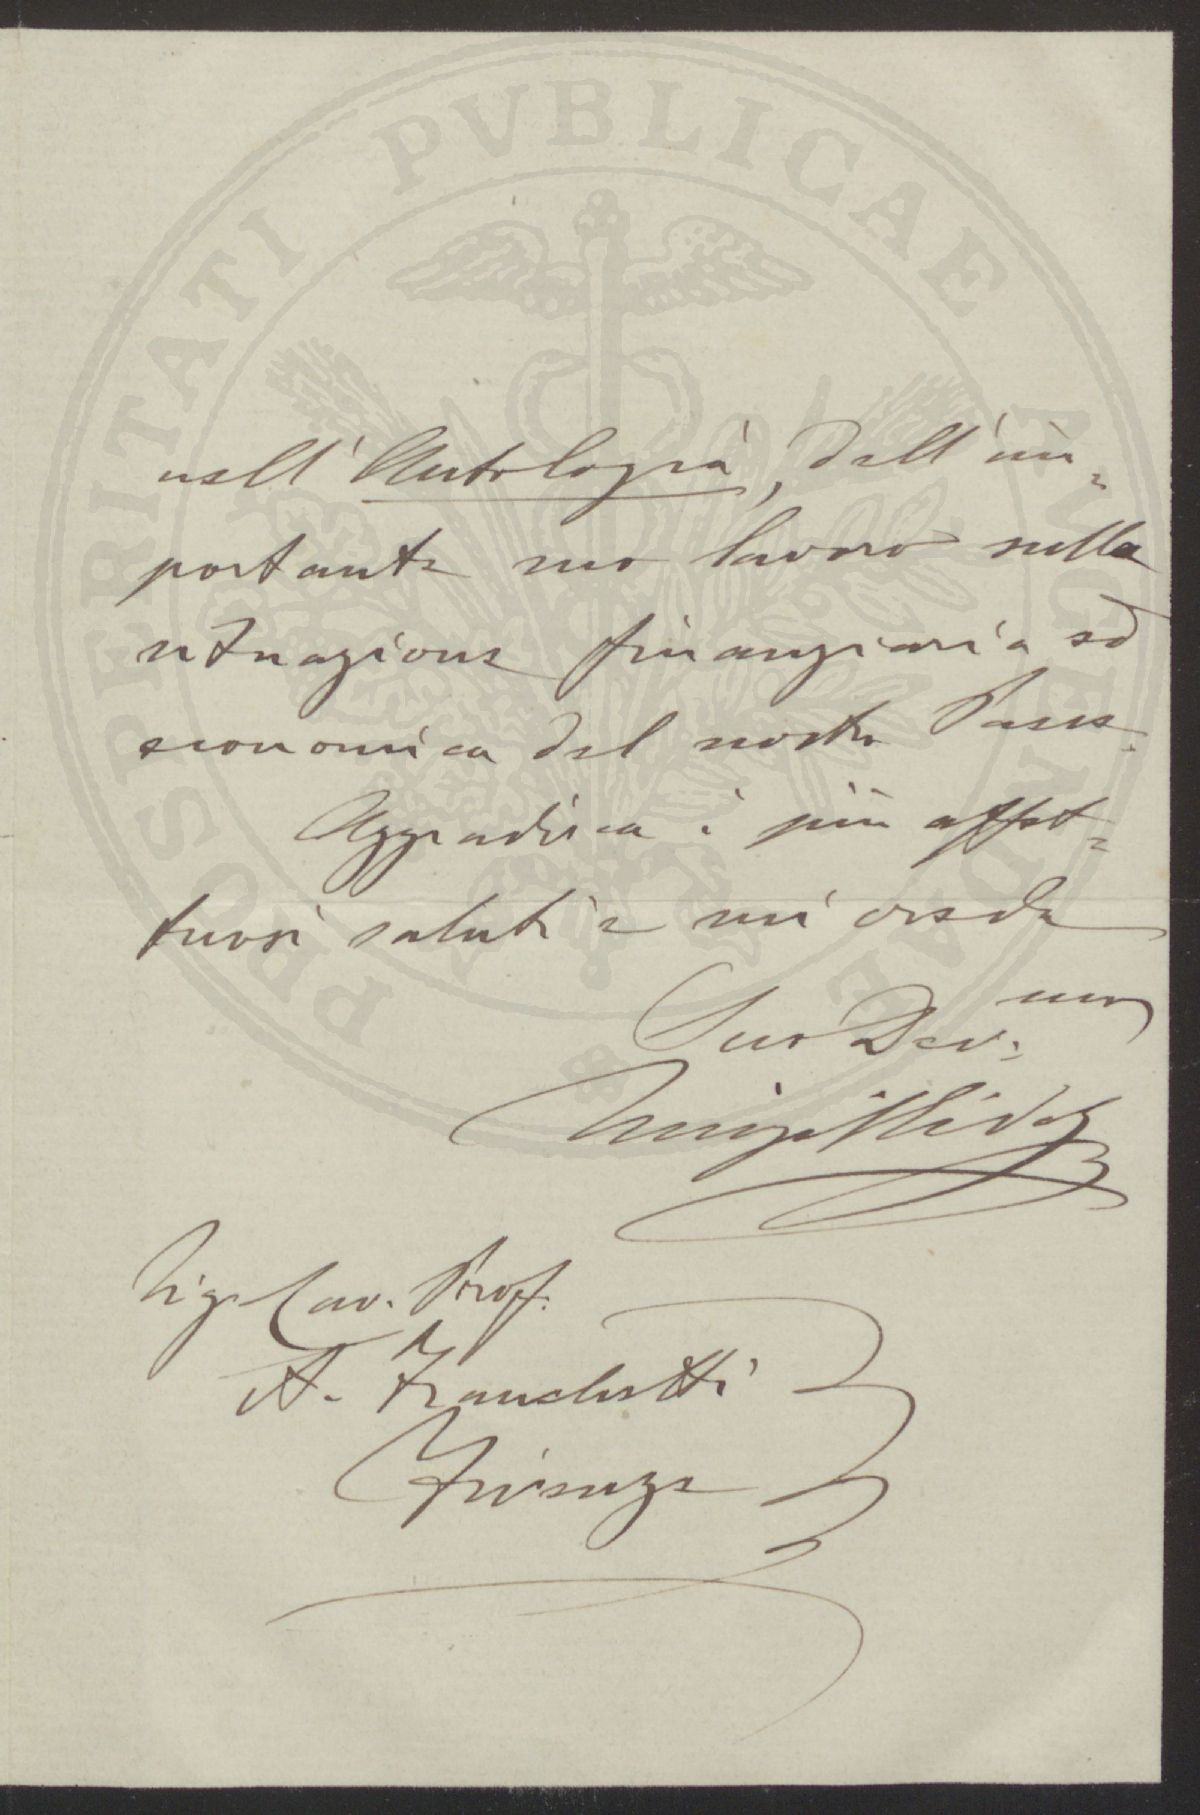 nell'Antologia, dell'im=
portante suo lavoro sulla
situazione finanziaria ed
economica del nostro Paese.
Aggradisca i più affet=
tuosi saluti e mi creda
Suo Dev.mo
Luigi Ridolfi
Sig. Cav. Prof.
A. Franchetti
Firenze
PROSPERITATI PVBLICAE AVGENDAE